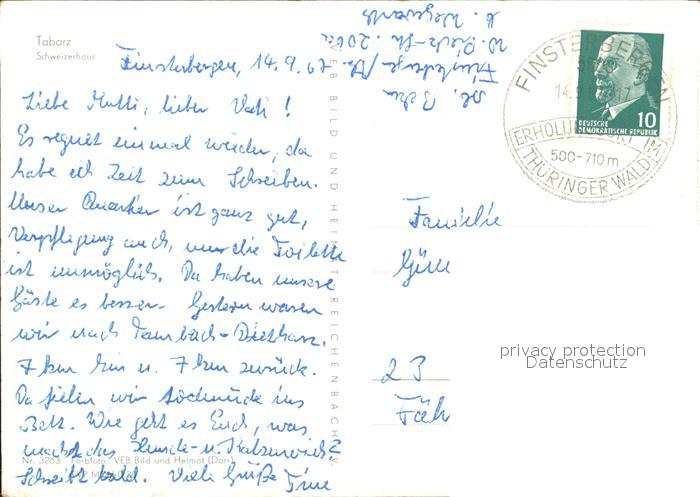 Tabarz
Schweizerhaus
Finsterbergen, 14.9.67
Liebe Mutti, lieber Vati!
Es regnet einmal wieder, da
habe ich Zeit zum Schreiben.
Unser Quartier ist ganz gut,
Verpflegung auch, nur die Toilette
ist unmöglich. Da haben unsere
Gäste es besser. Gestern waren
wir nach Tambach-Dietharz.
7 km hin u. 7 km zurück.
Da fielen wir todmüde ins
Bett. Wie geht es Euch, was
macht das Hunde- u. Katzenvieh?
Schreibt bald. Viele Grüße
Nr. 3263 Farbfoto: VEB Bild und Heimat (Darr)
VEB BILD UND HEIMAT REICHENBACH
FINSTERBERGEN
14.9.
ERHOLUNGSORT IM
500-710 m
THÜRINGER WALD
10
DEUTSCHE
DEMOKRATISCHE REPUBLIK
Familie
23
privacy protection
Datenschutz